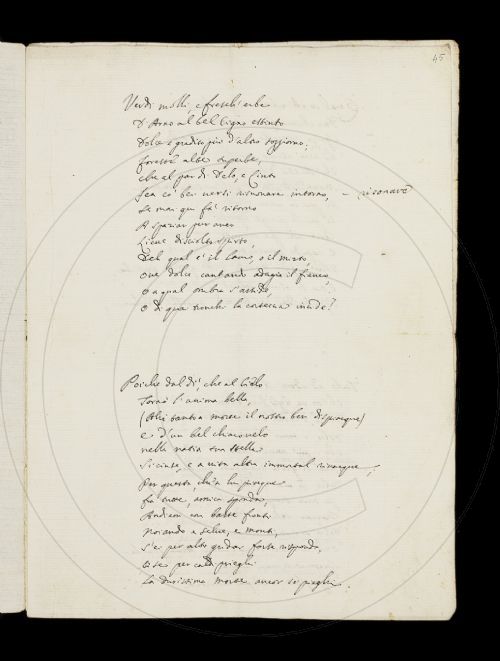 45
Verdi molli, e fresch' erbe
D'Arno al bel
Dolce e gradito più d'altro soggiorno;
foreste alte e superbe,
che al par di Delo, e Cinto
Sea co' bei versi risonare intorno, - risonare
Se mai qui fa' ritorno
A spaziar per aura
Lieve disciolto spirto,
Del qual è il lauro, o il mirto,
Ove dolci cantando adagia il fianco,
O a qual ombra s'asside,
O di qua tronchi la corteccia incide?
Poiche dal dì, che al Cielo
Tornò l'anima bella,
(Ahi tanto a morte il nostro ben dispiacque)
e d'un bel chiaro velo
nella natia sua stella
Si cinse, e a vita altra immortal rinacque;
Per questa, ch'a lui piacque
fra tutte, amica sponda,
Andiam con basse fronti
Noiando e selve, e monti,
S'ei per altri gridar forte risponda,
O se per caldi prieghi
La durissima morte ancor si pieghi.